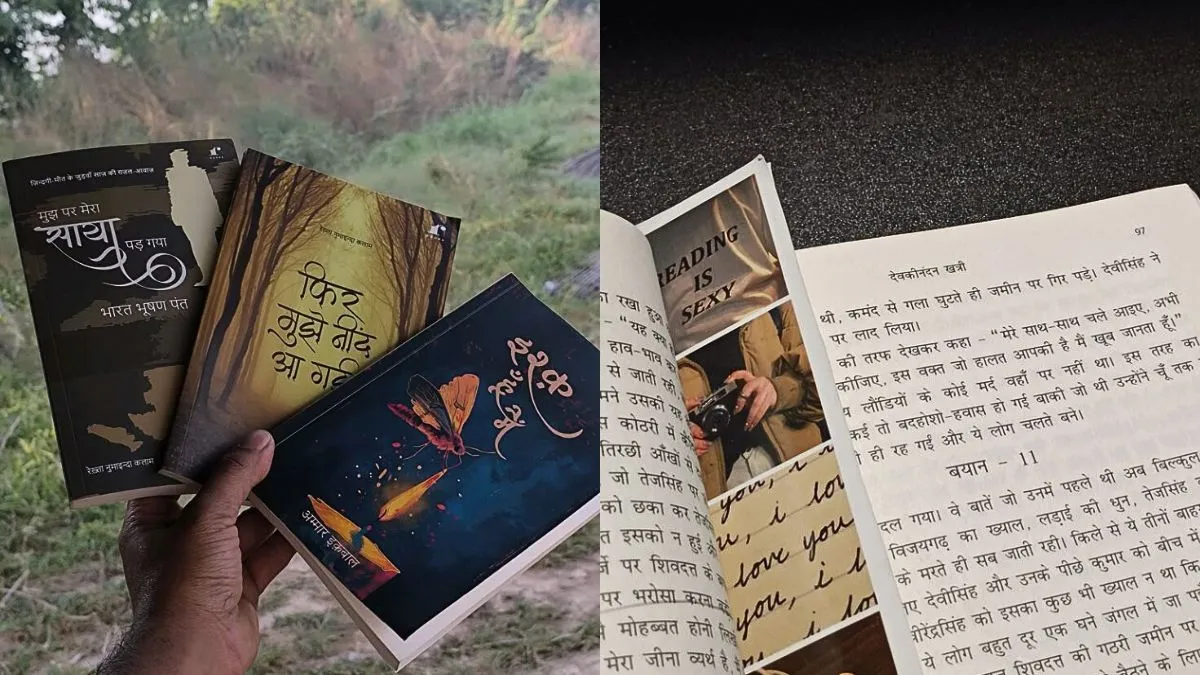 ज़िन्दगी-मौत के जुड़वाँ साज़ की ग़ज़ल-आवाज़
मुझ पर मेरा
साया पड़ गया
भारत भूषण पंत
रेख़्ता नुमाइन्दा कलाम
रेख़्ता नुमाइन्दा कलाम
फिर
मुझे नींद
आ गई
अम्मार इक़बाल
READING
IS
SEXY
you, i
i lov
love you
you, i l
i lo
रखा
"यह
हाव-भाव
से जाती रही
उसको यह
कोठरी में
तिरछी आँखों
जो तेजसिंह पर
को छका कर
इसको न हुई
पर शिवदत्त के
पर भरोसा करना
मोहब्बत होनी
मेरा जीना व्यर्थ है
97
देवकीनंदन खत्री
थी, कमंद से गला घुटते ही जमीन पर गिर पड़े। देवीसिंह ने
पर लाद लिया।
की तरफ देखकर कहा - "मेरे साथ-साथ चले आइए, अभी
कीजिए, इस वक्त जो हालत आपकी है मैं खूब जानता हूँ।"
लौंडियों के कोई मर्द वहाँ पर नहीं था। इस तरह का
कई तो बदहोशो-हवास हो गई बाकी जो थी उन्होंने चूँ तक
ही रह गईं और ये लोग चलते बने।
बयान - 11
दल गया। वे बातें जो उनमें पहले थी अब बिल्कुल
विजयगढ़ का ख्याल, लड़ाई की धुन, तेजसिंह
के मरते ही सब जाती रही। किले से ये तीनों बाहर
देवीसिंह और उनके पीछे कुमार को बीच में
वीरेंद्रसिंह को इसका कुछ भी ख्याल न था कि
ये लोग बहुत दूर एक घने जंगल में जा
शिवदत्त की गठरी जमीन पर
के लिए